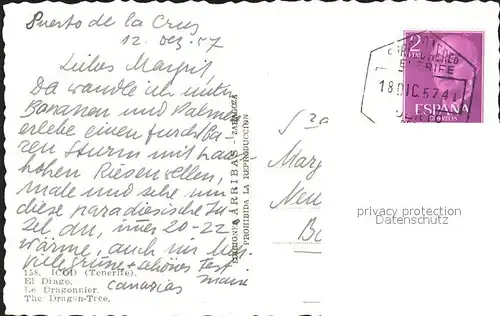 Puerto de la Cruz
12. Dez. 57
Liebes Margrit,
Da wandle ich unter
Bananen und Palmen
erlebe einen furchtba-
ren Sturm mit
hohen Riesenwellen,
male und sehe mir
diese paradiesische In-
sel an, 20-22
wärme, auch im
grüne + schönes Fest
158. ICOD (Tenerife).
El Drago.
Le Dragonnier.
The Dragon-Tree.
Canarias
EDICIONES ARRIBAS - ZARAGOZA
PROHIBIDA LA REPRODUCCION
2
PTAS
18 DIC. 57
ESPAÑA
CORREOS
Neu
privacy protection
Datenschutz